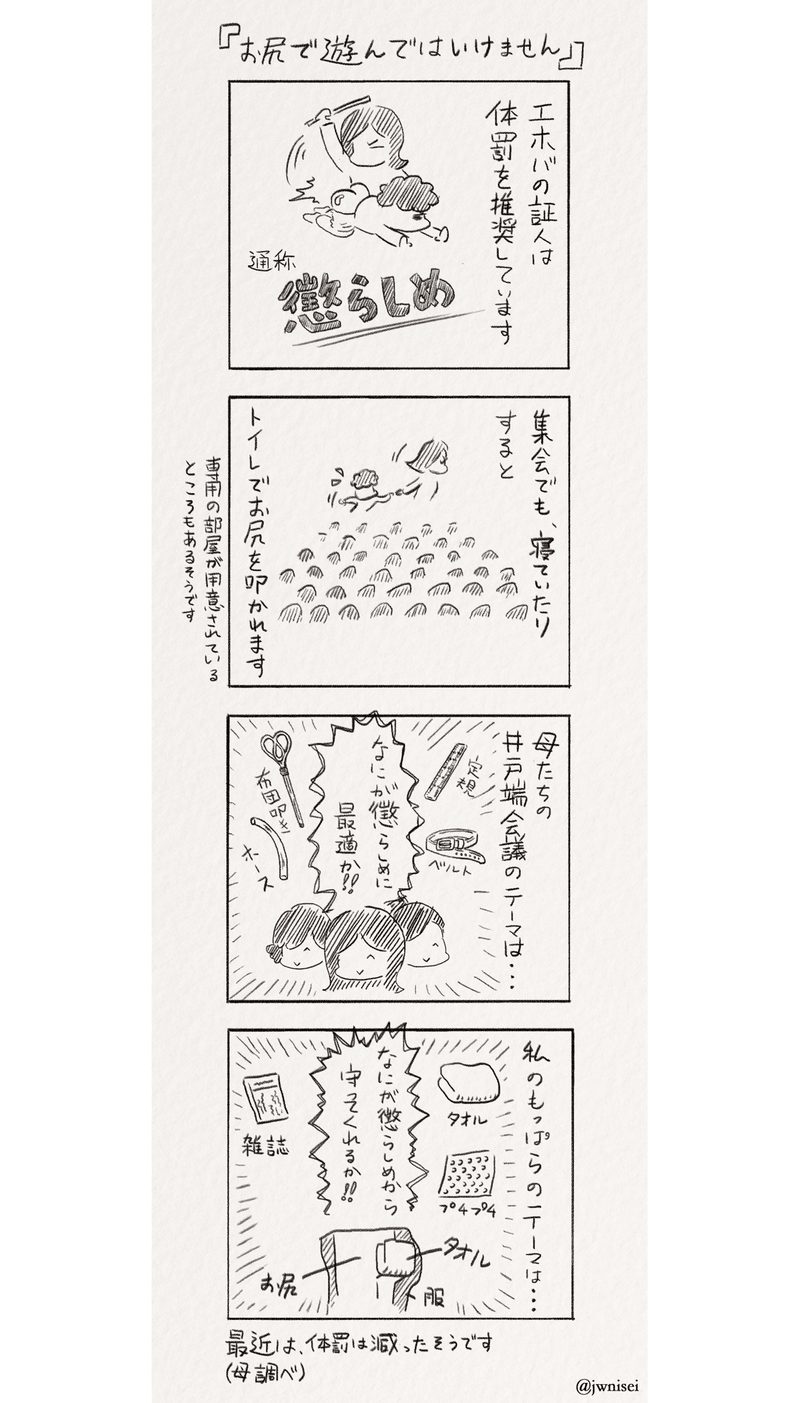 『お尻で遊んではいけません』
エホバの証人は
体罰を推奨しています
通称
懲らしめ
集会でも、寝ていたり
すると
トイレでお尻を叩かれます
専用の部屋が用意されている
ところもあるそうです
母たちの
井戸端会議のテーマは・・・
定規
ベルト
なにが懲らしめに
最適か!!
布団叩き
ホース
私のもっぱらのテーマは・・・
タオル
プチプチ
なにが懲らしめから
守ってくれるか!!
雑誌
タオル
服
お尻
最近は、体罰は減ったそうです
(母調べ)
@jwnisei